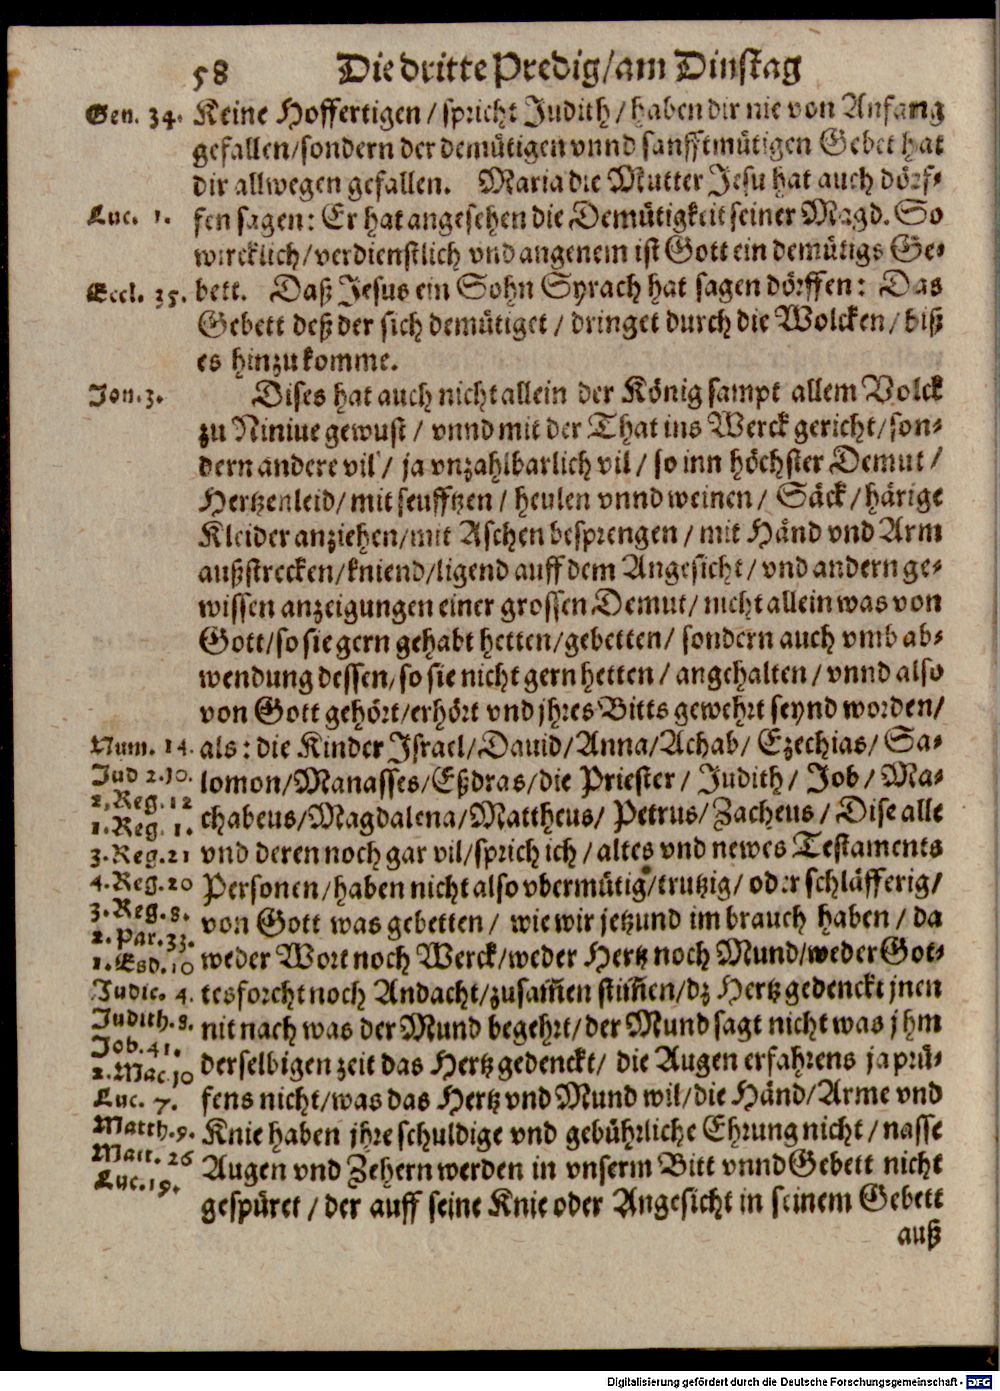 58 Die dritte Predig/am Dinstag
Gen. 34. Keine Hoffertigen / spricht Judith / haben dir nie von Anfang
gefallen/sondern der demütigen vnnd sanfftmütigen Gebet hat
dir allwegen gefallen. Maria die Mutter Jesu hat auch dörf-
Luc. 1. fen sagen: Er hat angesehen die Demütigkeit seiner Magd. So
wircklich/verdienstlich vnd angenem ist Gott ein demütigs Ge-
Eccl. 35. bett. Daß Jesus ein Sohn Syrach hat sagen dörffen: Das
Gebett deß der sich demütiget / dringet durch die Wolcken/ biß
es hinzu komme.
Jon. 3. Dises hat auch nicht allein der König sampt allem Volck
zu Niniue gewust / vnnd mit der That ins Werck gericht/ son-
dern andere vil / ja vnzahlbarlich vil / so inn höchster Demut /
Hertzenleid/ mit seufftzen / heulen vnnd weinen / Säck / härige
Kleider anziehen/mit Aschen besprengen / mit Händ vnd Arm
außstrecken/kniend/ligend auff dem Angesicht / vnd andern ge-
wissen anzeigungen einer grossen Demut/ nicht allein was von
Gott/so sie gern gehabt hetten/gebetten/ sondern auch vmb ab-
wendung dessen, so sie nicht gern hetten / angehalten / vnnd also
von Gott gehört/erhört vnd jhres Bitts gewehrt seynd worden/
Num. 14. als: die Kinder Israel/Dauid/Anna/Achab/ Ezechias/ Sa-
Jud 2.10. lomon/Manasses/Eßdras/die Priester / Judith / Job / Ma-
2. Reg. 12 chabeus/Magdalena/Mattheus/ Petrus/ Zacheus / Dise alle
1. Reg. 1.
3. Reg. 21 vnd deren noch gar vil/sprich ich / altes vnd newes Testaments
4. Reg. 20 Personen/haben nicht also vbermütig/trutzig/ oder schläfferig/
3. Reg. 8. von Gott was gebetten / wie wir jetzund im brauch haben / da
2. Par. 33.
1. Esd. 10 weder Wort noch Werck/weder Hertz noch Mund/weder Got-
Judic. 4. tesforcht noch Andacht/zusam̃en stim̃en/dz Hertz gedenckt jnen
Judith. 8. nit nach was der Mund begehrt/ der Mund sagt nicht was jhm
Job. 41.
2. Mac 10 derselbigen zeit das Hertz gedenckt/ die Augen erfahrens ja prü-
Luc. 7. fens nicht/was das Hertz vnd Mund wil/die Händ/Arme vnd
Matth. 9. Knie haben jhre schuldige vnd gebührliche Ehrung nicht / nasse
Matt. 26 Augen vnd Zehern werden in vnserm Bitt vnnd Gebett nicht
Luc. 19. gespüret / der auff seine Knie oder Angesicht in seinem Gebett
auß
Digitalisierung gefördert durch die Deutsche Forschungsgemeinschaft - DFG